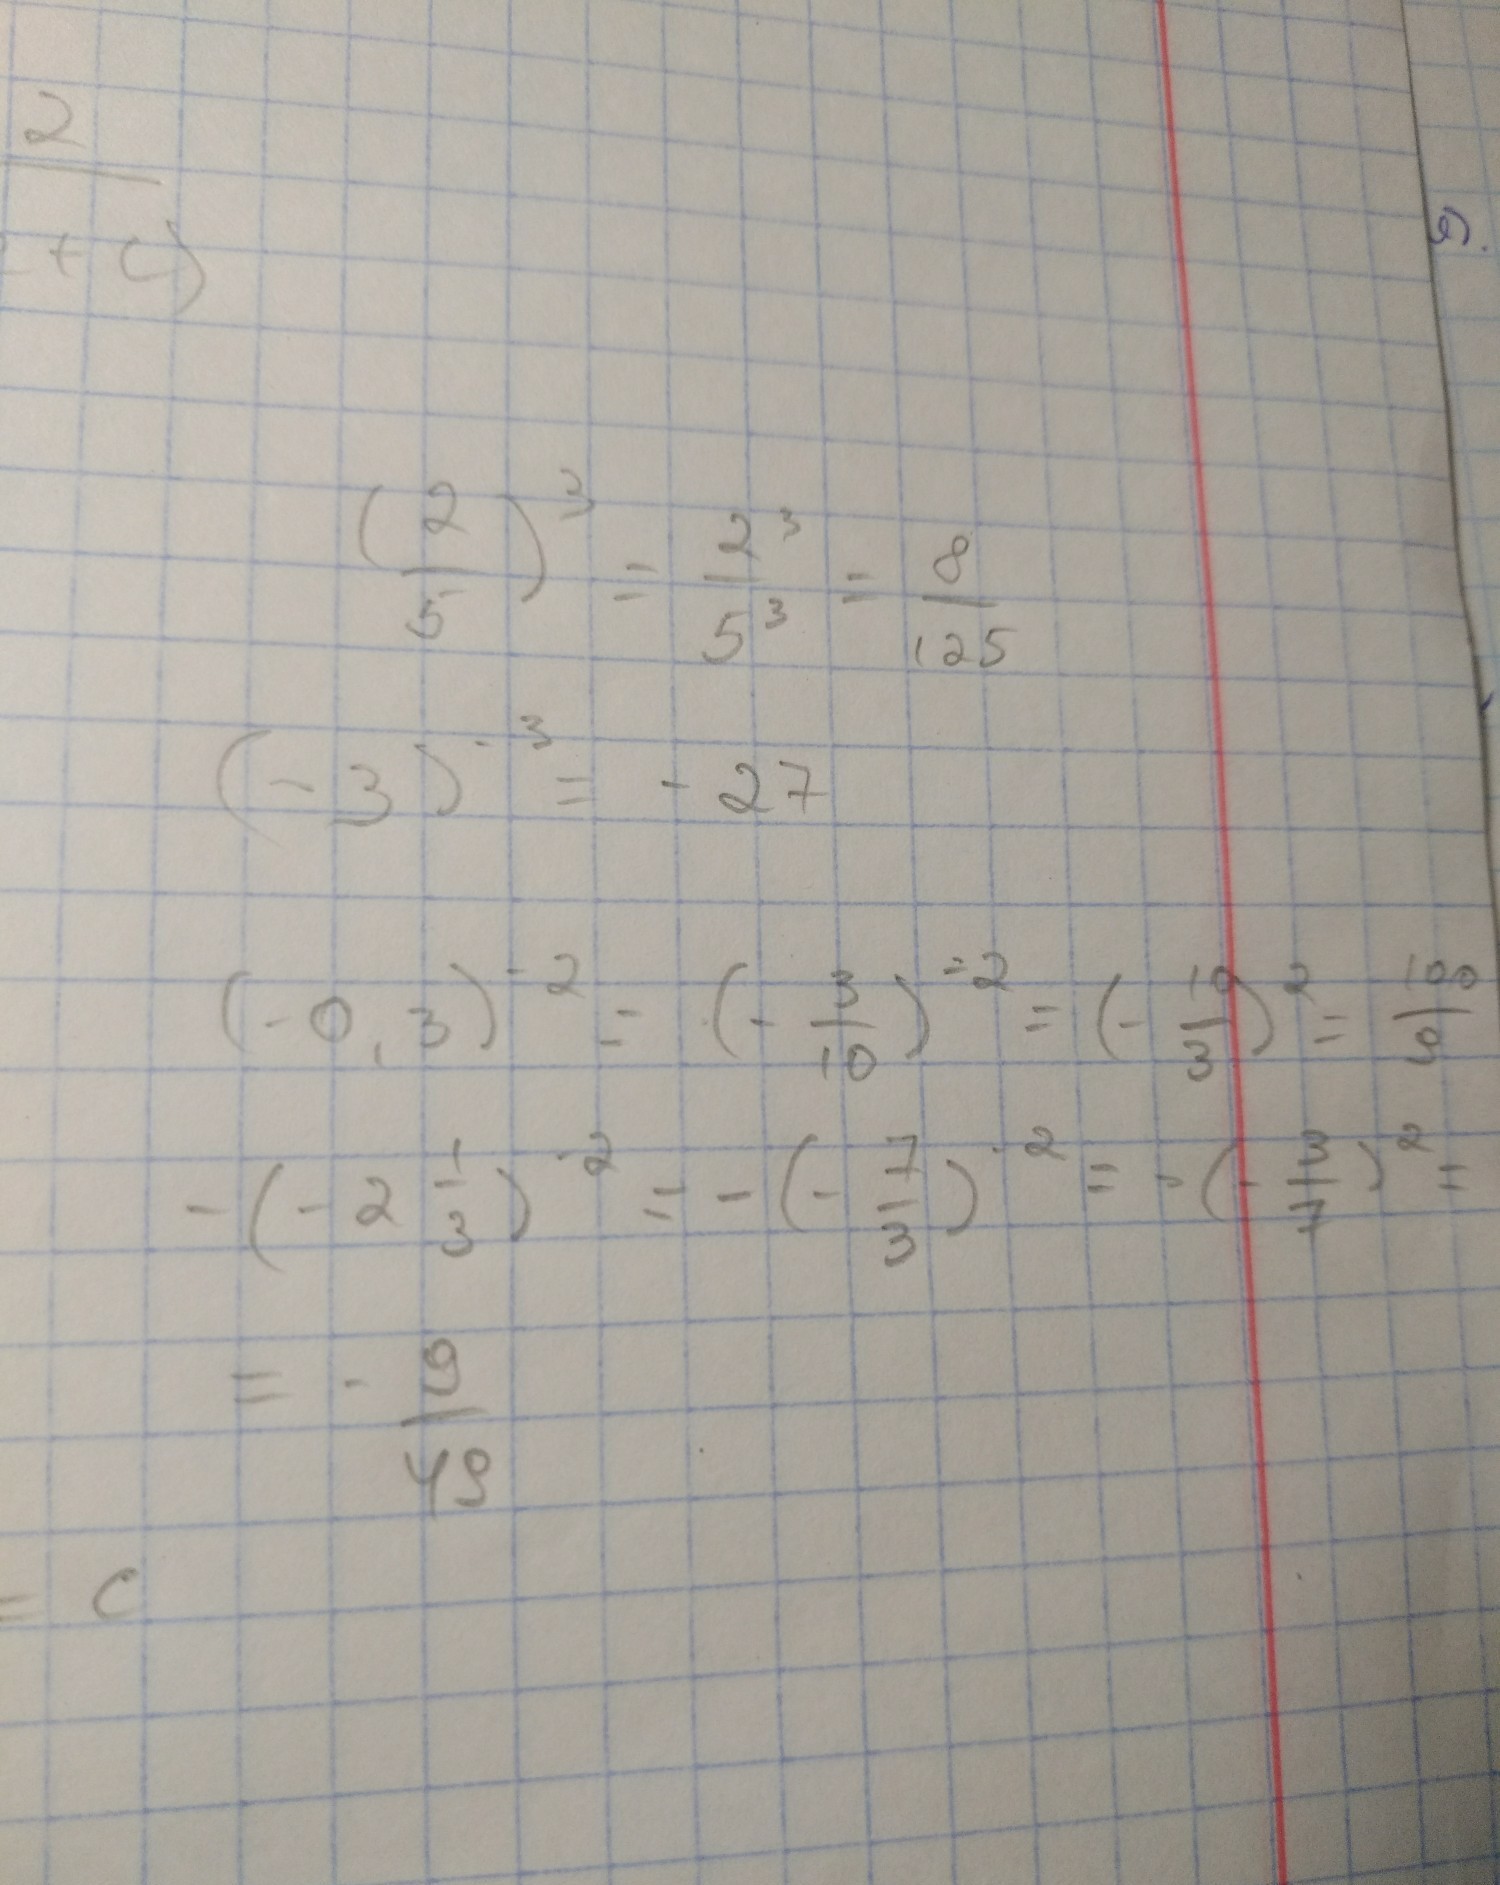 2
+ c)
(2/5)³ = 2³/5³ = 8/125
(-3)⁻³ = -27
(-0,3)⁻² = (-3/10)⁻² = (-10/3)² = 100/9
-(-2 1/3)⁻² = -(-7/3)⁻² = -(-3/7)² =
= - 9/49
= c